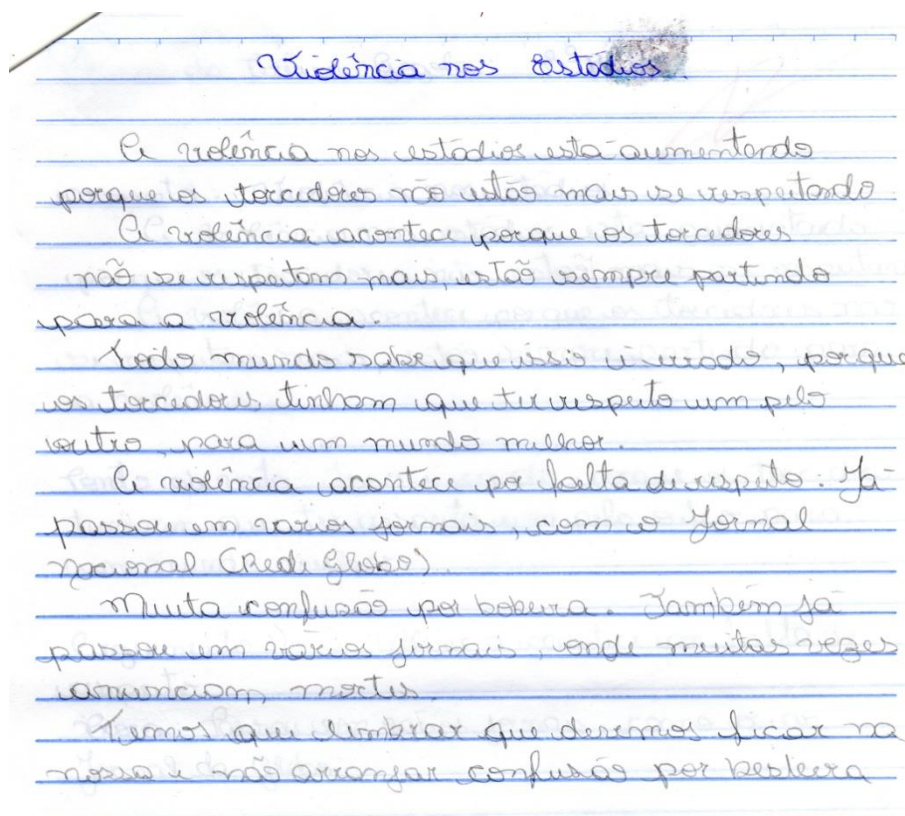 Violência nos Estádios.
A violência nos estádios está aumentando
porque os torcedores não estão mais se respeitando
A violência acontece porque os torcedores
não se respeitam mais, estão sempre partindo
para a violência.
Todo mundo sabe que isso é errado, porque
os torcedores tinham que ter respeito um pelo
outro, para um mundo melhor.
A violência acontece por falta de respeito: Já
passou em varios jornais, com o Jornal
nacional (Rede Globo).
Muita confusão por bobeira. Também já
passou em vários jornais, onde muitas vezes
anunciam, mortes.
Temos que lembrar que devemos ficar na
nossa e não arranjar confusão por besteira